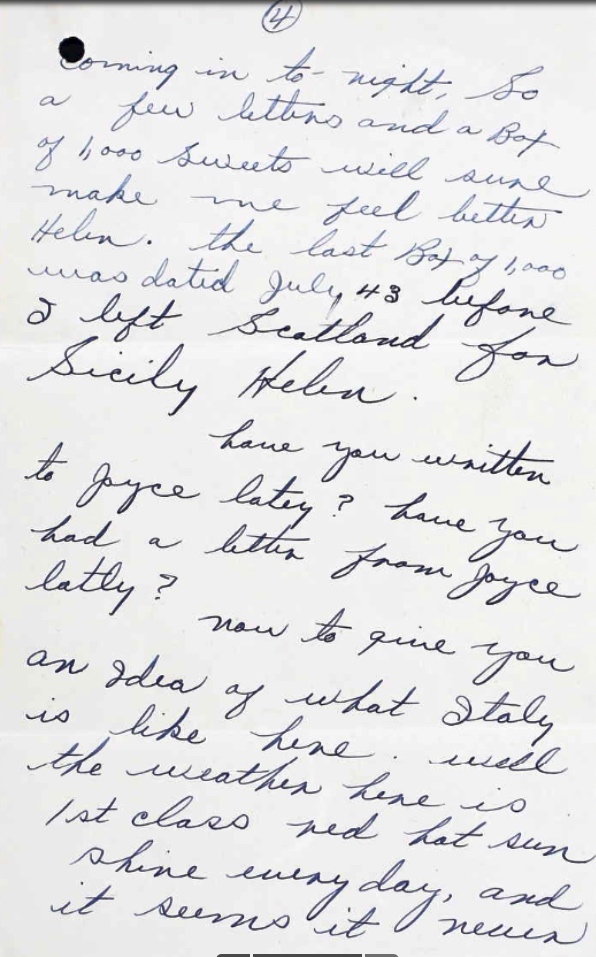 4
coming in to-night, So
a few letters and a Box
of 1,000 Sweets will sure
make me feel better
Helen. the last Box of 1,000
was dated July, 43 before
I left Scotland for
Sicily Helen.
have you written
to Joyce latey? have you
had a letter from Joyce
latly?
now to give you
an Idea of what Italy
is like here. well
the weather here is
1st class red hot sun
shine every day, and
it seems it never